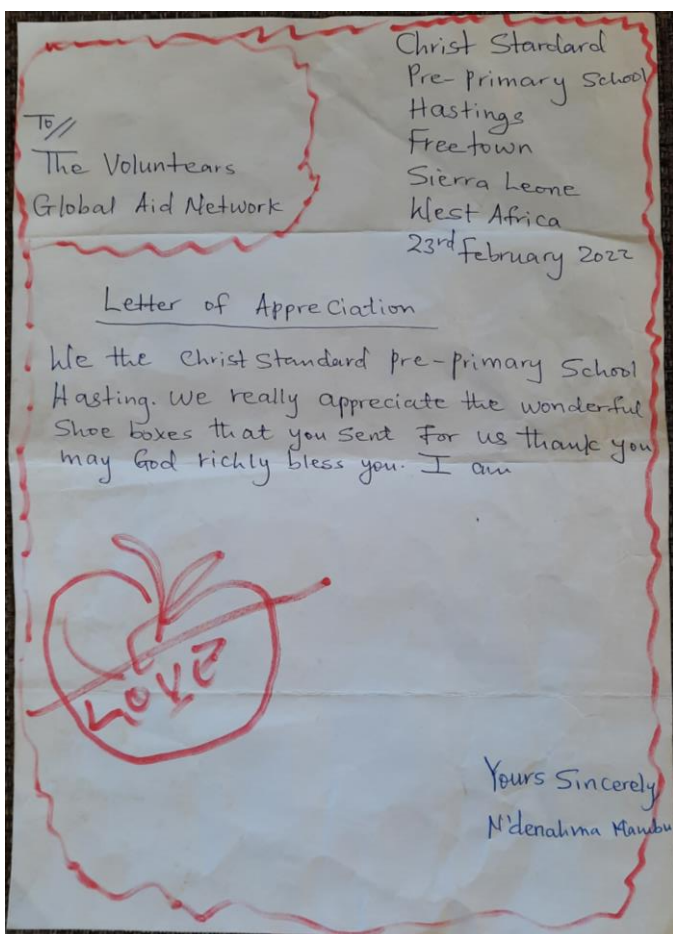 Christ Stardard
Pre-Primary School
Hastings
Freetown
Sierra Leone
West Africa
23rd February 2022
To//
The Voluntears
Global Aid Network
Letter of Appreciation
We the Christ Standard Pre-primary School
Hasting. We really appreciate the wonderful
Shoe boxes that you Sent For us thank you
may God richly bless you. I am
LOVE
Yours Sincerely
N'denahma Mambu